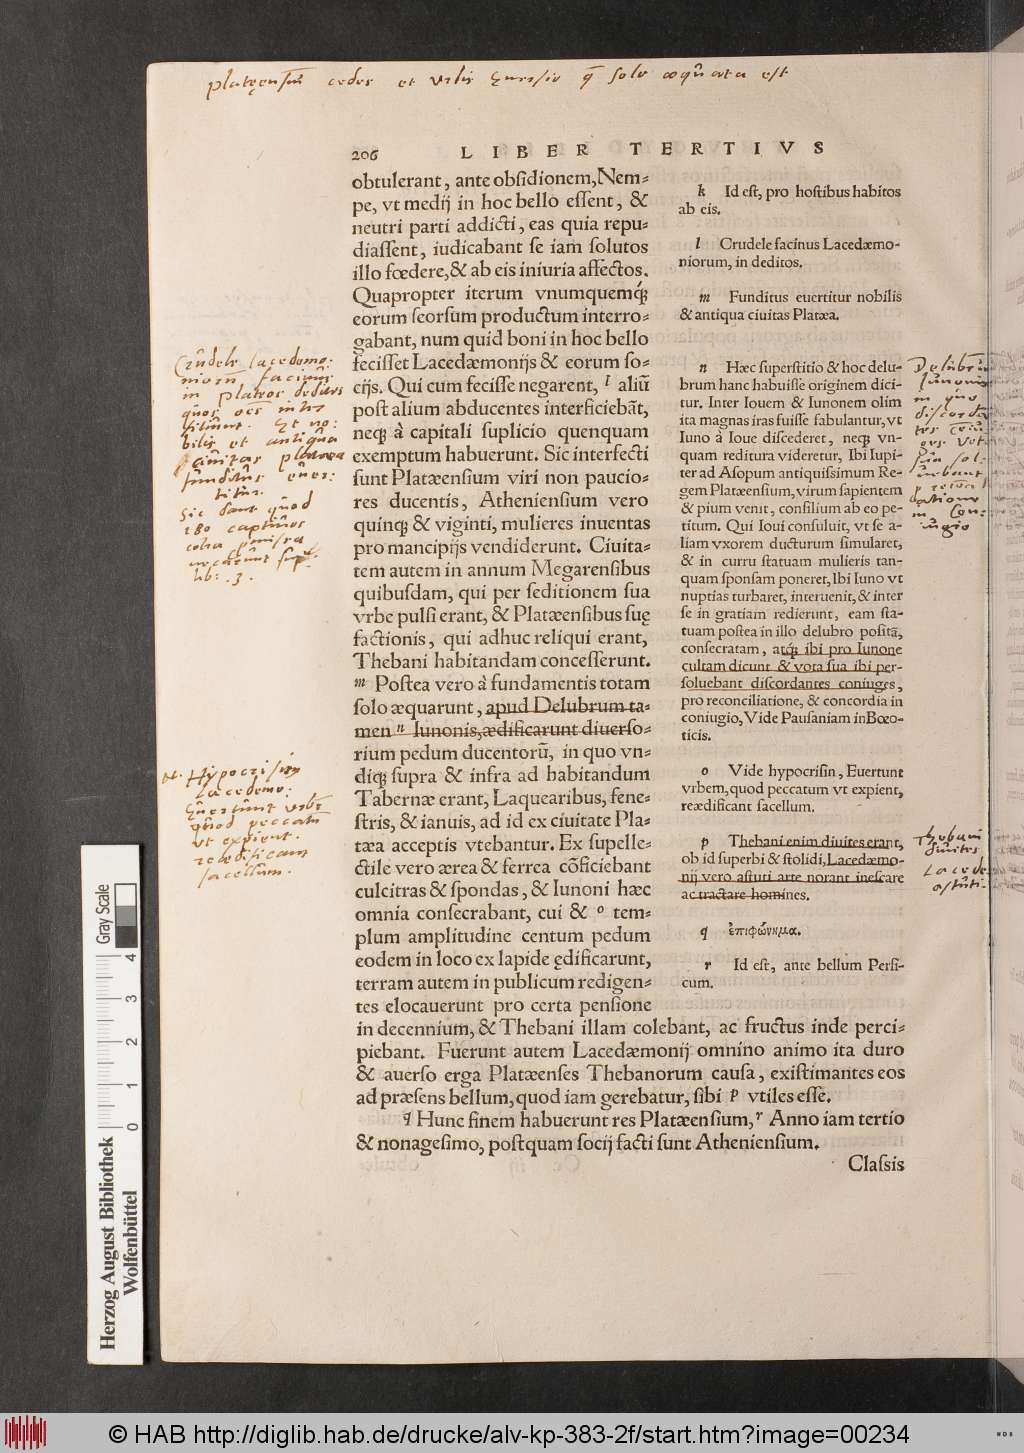 Plateensiu cedes et urbis Euersio q solo æquata est
206 LIBER TERTIVS
obtulerant, ante obsidionem, Nem-
pe, vt medij in hoc bello essent, &
neutri parti addicti, eas quia repu-
diassent, iudicabant se iam solutos
illo fœdere, & ab eis iniuria affectos.
Quapropter iterum vnumquemq́;
eorum seorsum productum interro-
gabant, num quid boni in hoc bello
fecisset Lacedæmonijs & eorum so-
cijs. Qui cum fecisse negarent, l aliũ
post alium abducentes interficiebãt,
neq; à capitali suplicio quenquam
exemptum habuerunt. Sic interfecti
sunt Platæensium viri non paucio-
res ducentis, Atheniensium vero
quinq; & viginti, mulieres inuentas
pro mancipijs vendiderunt. Ciuita-
tem autem in annum Megarensibus
quibusdam, qui per seditionem sua
vrbe pulsi erant, & Platæensibus suę
factionis, qui adhuc reliqui erant,
Thebani habitandam concesserunt.
m Postea vero à fundamentis totam
solo æquarunt, apud Delubrum ta-
men n Iunonis, ædificarunt diuerso-
rium pedum ducentorũ, in quo vn-
diq; supra & infra ad habitandum
Tabernæ erant, Laquearibus, fene-
stris, & ianuis, ad id ex ciuitate Pla-
tæa acceptis vtebantur. Ex supelle-
ctile vero ærea & ferrea cõficiebant
culcitras & spondas, & Iunoni hæc
omnia consecrabant, cui & o tem-
plum amplitudine centum pedum
eodem in loco ex lapide ędificarunt,
terram autem in publicum redigen-
tes elocauerunt pro certa pensione
in decennium, & Thebani illam colebant, ac fructus inde perci-
piebant. Fuerunt autem Lacedæmonij omnino animo ita duro
& auerso erga Platæenses Thebanorum causa, existimantes eos
ad præsens bellum, quod iam gerebatur, sibi p vtiles esse.
q Hunc finem habuerunt res Platæensium, r Anno iam tertio
& nonagesimo, postquam socij facti sunt Atheniensium.
Classis
k Id est, pro hostibus habitos
ab eis.
l Crudele facinus Lacedæmo-
niorum, in deditos.
m Funditus euertitur nobilis
& antiqua ciuitas Platæa.
n Hæc superstitio & hoc delu-
brum hanc habuisse originem dici-
tur. Inter Iouem & Iunonem olim
ita magnas iras fuisse fabulantur, vt
Iuno à Ioue discederet, neq; vn-
quam reditura videretur, Ibi Iupi-
ter ad Asopum antiquissimum Re-
gem Platæensium, virum sapientem
& pium venit, consilium ab eo pe-
titum. Qui Ioui consuluit, vt se a-
liam vxorem ducturum simularet,
& in curru statuam mulieris tan-
quam sponsam poneret, Ibi Iuno vt
nuptias turbaret, interuenit, & inter
se in gratiam redierunt, eam sta-
tuam postea in illo delubro positã,
consecratam, atq́; ibi pro Iunone
cultam dicunt & vota sua ibi per-
soluebant discordantes coniuges,
pro reconciliatione, & concordia in
coniugio, Vide Pausaniam in Bœo-
ticis.
o Vide hypocrisin, Euertunt
vrbem, quod peccatum vt expient,
reædificant sacellum.
p Thebani enim diuites erant,
ob id superbi & stolidi, Lacedæmo-
nij vero astuti arte norant inescare
ac tractare homines.
q ἐπιφώνημα.
r Id est, ante bellum Persi-
cum.
Crudele Lacedemo:
niorũ facinus
in plateos deditos
quos oẽs inter
ficiunt. Et no:
bilis et antiqua
ciuitas plataea
funditus euer:
titur.
Sic dant quod
180 captiuos
lib: .3.
N. Hypocrisin
Lacedemo:
Euertunt urbẽ
quod peccatũ
ut expient.
reædificant
sacellum.
Delubrũ
Iunonis
in quo
discorda
tes coniu
ges vot
sua sol-
uebant
p reconcili
atione
in Con-
iugio
Thebani
diuites
Lacede
astuti.
Gray Scale
0 1 2 3 4
Herzog August Bibliothek
Wolfenbüttel
© HAB http://diglib.hab.de/drucke/alv-kp-383-2f/start.htm?image=00234